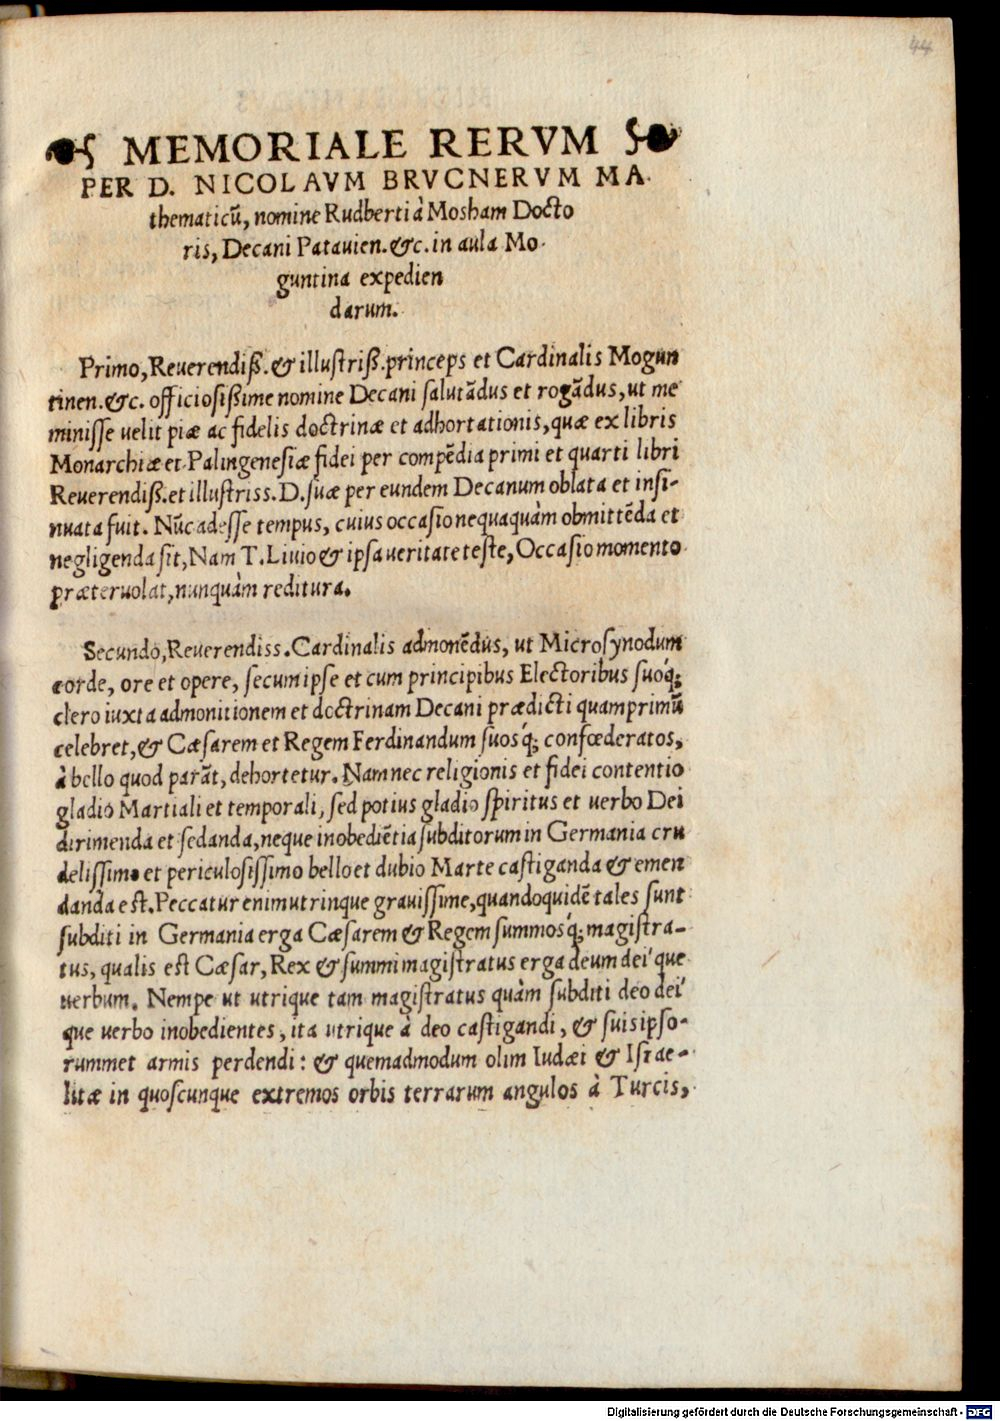 44
MEMORIALE RERVM
PER D. NICOLAVM BRVCNERVM MA-
thematicũ, nomine Rudberti à Mosham Docto
ris, Decani Patauien. &c. in aula Mo-
guntina expedien
darum.
Primo, Reuerendiß. & illuſtriß. princeps et Cardinalis Mogun
tinen. &c. officioſißime nomine Decani ſalutãdus et rogãdus, ut me
miniſſe uelit piæ ac fidelis doctrinæ et adhortationis, quæ ex libris
Monarchiæ et Palingeneſiæ fidei per compẽdia primi et quarti libri
Reuerendiß. et illuſtriss. D. ſuæ per eundem Decanum oblata et inſi-
nuata fuit. Nũc adeſſe tempus, cuius occaſio nequaquàm obmittẽda et
negligenda ſit, Nam T. Liuio & ipſa ueritate teſte, Occaſio momento
præteruolat, nunquàm reditura.
Secundò, Reuerendiss. Cardinalis admonẽdus, ut Microſynodum
corde, ore et opere, ſecum ipſe et cum principibus Electoribus ſuoq́;
clero iuxta admonitionem et doctrinam Decani prædicti quamprimũ
celebret, & Cæſarem et Regem Ferdinandum ſuosq́; confœderatos,
à bello quod parãt, dehortetur. Nam nec religionis et fidei contentio
gladio Martiali et temporali, ſed potius gladio ſpiritus et uerbo Dei
dirimenda et ſedanda, neque inobediẽtia ſubditorum in Germania cru
deliſſimo et periculoſiſſimo bello et dubio Marte caſtiganda & emen
danda eſt. Peccatur enim utrinque grauiſſime, quandoquidẽ tales ſunt
ſubditi in Germania erga Cæſarem & Regem ſummosq́; magiſtra-
tus, qualis eſt Cæſar, Rex & ſummi magiſtratus erga deum dei'que
uerbum. Nempe ut utrique tam magiſtratus quàm ſubditi deo dei'
que uerbo inobedientes, ita utrique à deo caſtigandi, & ſuis ipſo-
rummet armis perdendi: & quemadmodum olim Iudæi & Iſrae-
litæ in quoſcunque extremos orbis terrarum angulos à Turcis,
Digitalisierung gefördert durch die Deutsche Forschungsgemeinschaft - DFG